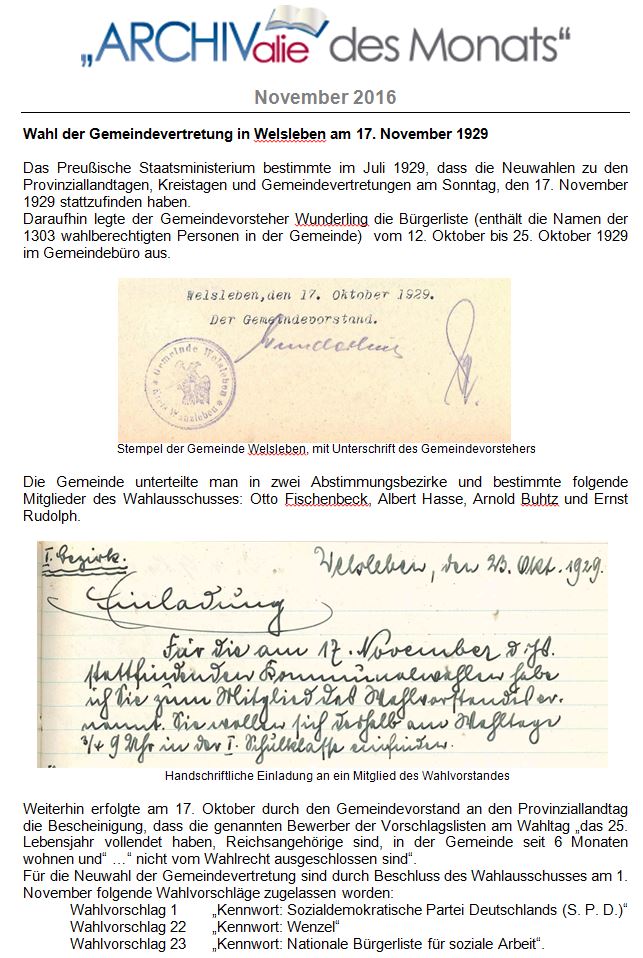 „ARCHIValie des Monats“
November 2016
Wahl der Gemeindevertretung in Welsleben am 17. November 1929
Das Preußische Staatsministerium bestimmte im Juli 1929, dass die Neuwahlen zu den
Provinziallandtagen, Kreistagen und Gemeindevertretungen am Sonntag, den 17. November
1929 stattzufinden haben.
Daraufhin legte der Gemeindevorsteher Wunderling die Bürgerliste (enthält die Namen der
1303 wahlberechtigten Personen in der Gemeinde) vom 12. Oktober bis 25. Oktober 1929
im Gemeindebüro aus.
Welsleben, den 17. Oktober 1929.
Der Gemeindevorstand.
Wunderling
Gemeinde Welsleben
Kreis Wanzleben
Stempel der Gemeinde Welsleben, mit Unterschrift des Gemeindevorstehers
Die Gemeinde unterteilte man in zwei Abstimmungsbezirke und bestimmte folgende
Mitglieder des Wahlausschusses: Otto Fischenbeck, Albert Hasse, Arnold Buhtz und Ernst
Rudolph.
I. Bezirk.
Welsleben, den 23. Okt. 1929.
Einladung
Für die am 17. November d. Js.
stattfindenden Kommunalwahlen habe
ich Sie zum Mitglied des Wahlvorstandes er-
nannt. Sie wollen sich deshalb am Wahltage
3/4 9 Uhr in der I. Schulklasse einfinden.
Handschriftliche Einladung an ein Mitglied des Wahlvorstandes
Weiterhin erfolgte am 17. Oktober durch den Gemeindevorstand an den Provinziallandtag
die Bescheinigung, dass die genannten Bewerber der Vorschlagslisten am Wahltag „das 25.
Lebensjahr vollendet haben, Reichsangehörige sind, in der Gemeinde seit 6 Monaten
wohnen und“ …“ nicht vom Wahlrecht ausgeschlossen sind“.
Für die Neuwahl der Gemeindevertretung sind durch Beschluss des Wahlausschusses am 1.
November folgende Wahlvorschläge zugelassen worden:
Wahlvorschlag 1 „Kennwort: Sozialdemokratische Partei Deutschlands (S. P. D.)“
Wahlvorschlag 22 „Kennwort: Wenzel“
Wahlvorschlag 23 „Kennwort: Nationale Bürgerliste für soziale Arbeit“.